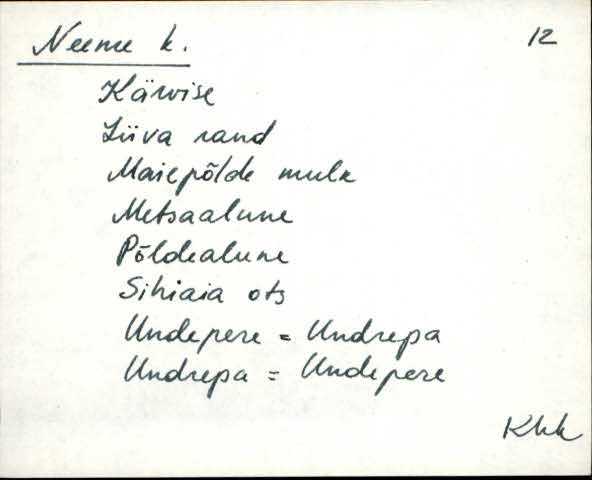 Neeme k. 12
Kärvise
Liiva rand
Maiepõlde mulk
Metsaalune
Põldealune
Sihiaia ots
Undepere = Undrepa
Undrepa = Undepere
Khk